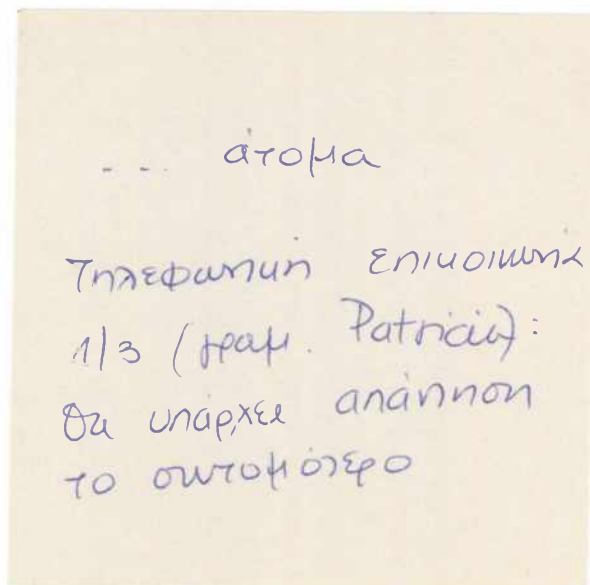 - - - άτομα
Τηλεφωνική επικοινωνία
1/3 (γραμ. Patricia):
θα υπάρχει απάντηση
το συντομότερο